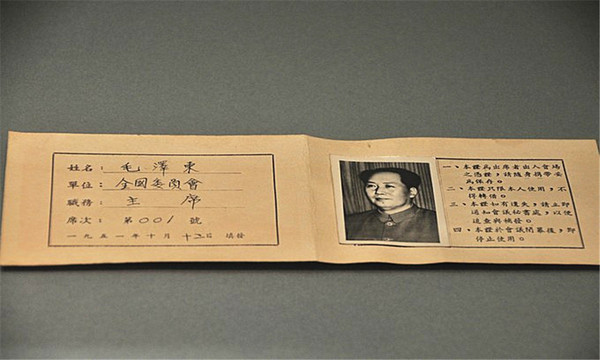 姓名：毛澤東
單位：全國委員會
職務：主席
席次：第001號
一九五一年十月十三日 填發
一、本證爲出席者出入會場
之憑證，請隨身携帶妥
爲保存。
二、本證只限本人使用，不
得轉借。
三、本證如有遺失，請立即
通知會議祕書處，以便
送查與補發。
四、本證於會議閉幕後，即
停止使用。